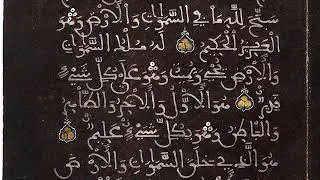 سبح لله ما في السموات والأرض وهو
العزيز الحكيم له ملك السموات
والأرض يحيي ويميت وهو على كل شيء
قدير هو الأول والآخر والظاهر
والباطن وهو بكل شيء عليم
هو الذي خلق السموات والأرض